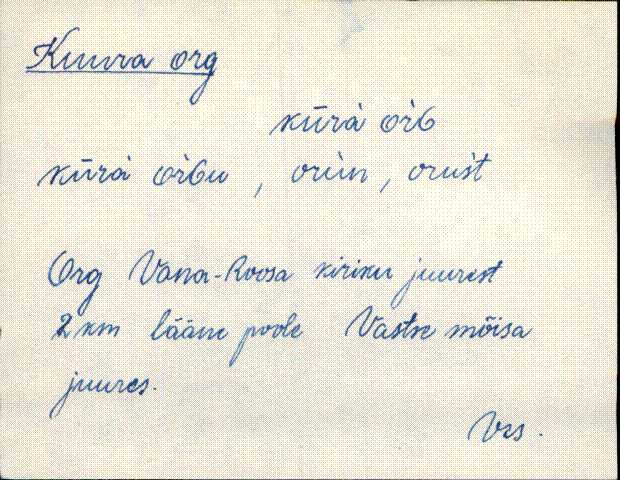 Kuura org
kūrà òrG
kūrà òrGu , orùn , orust
Org Vana-Roosa kiriku juurest
2 km lääne poole Vastse mõisa
juures.
Vas.